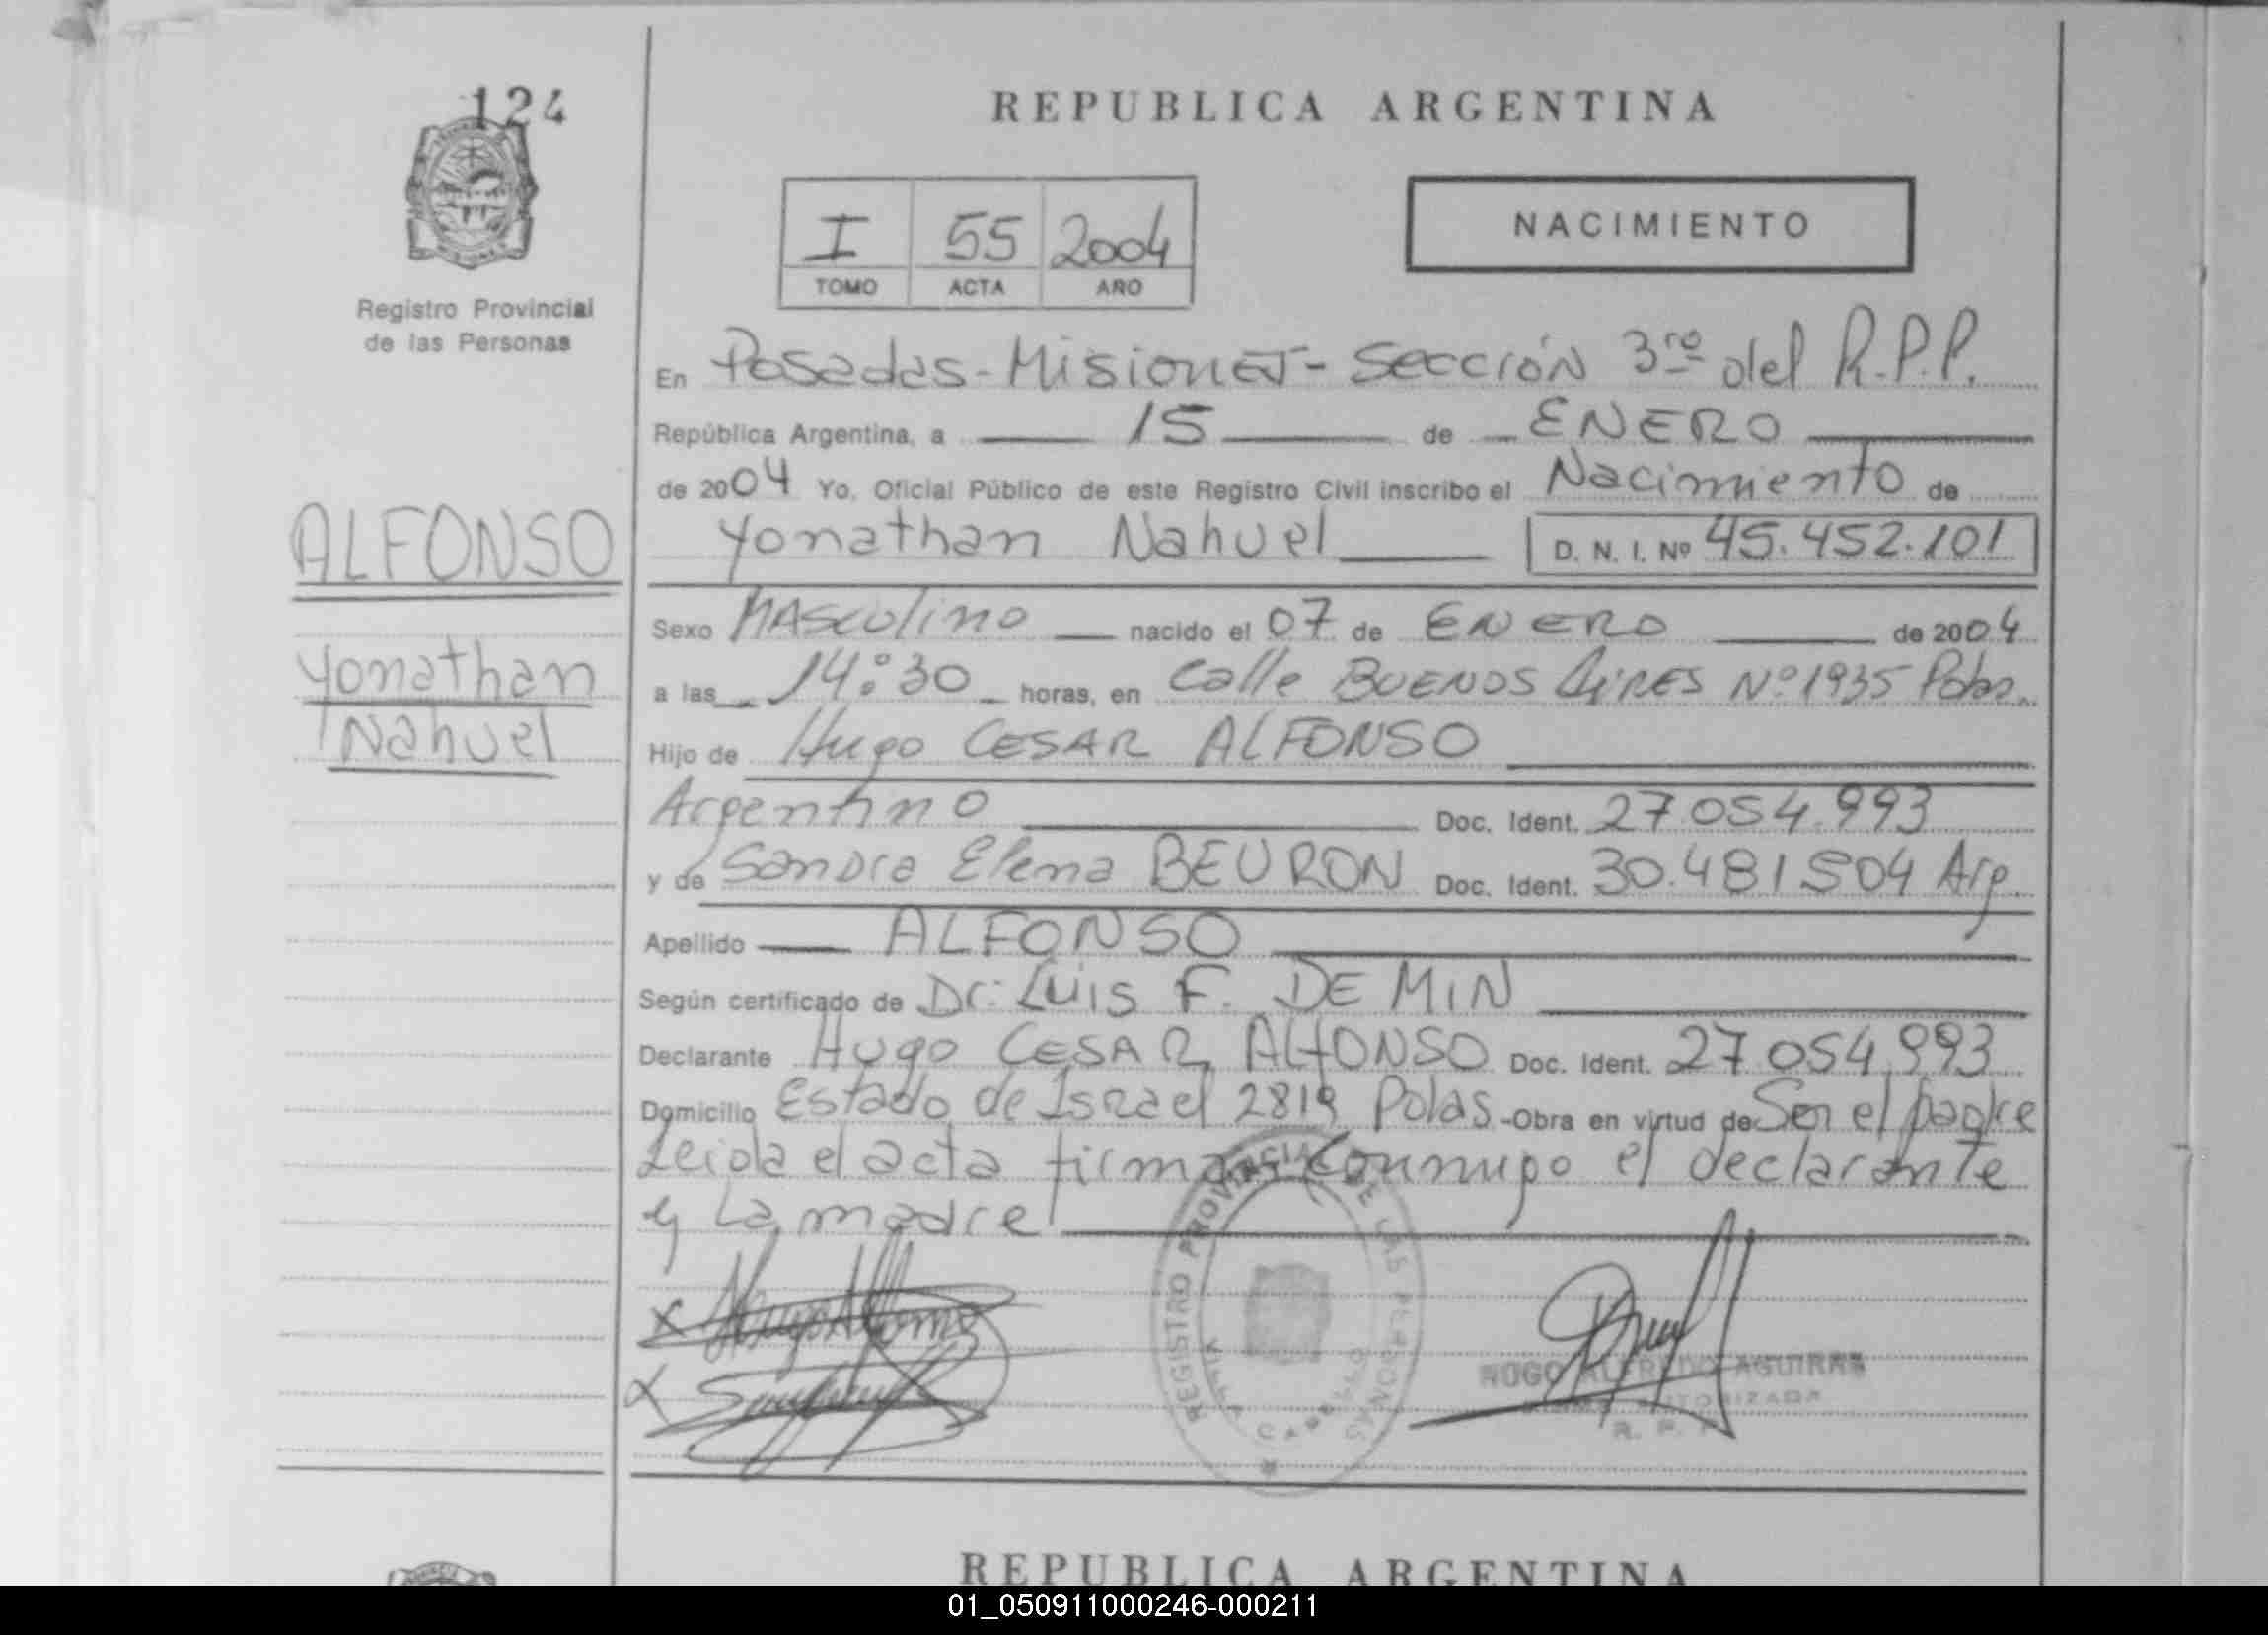 124
REPUBLICA ARGENTINA
I 55 2004
TOMO ACTA AÑO
NACIMIENTO
Registro Provincial
de las Personas
En Posadas - Misiones - Sección 3ra del R.P.P.
República Argentina, a 15 de ENERO
de 2004 Yo, Oficial Público de este Registro Civil inscribo el Nacimiento de
Yonathan Nahuel D. N. I. Nº 45.452.101
ALFONSO
Yonathan
Nahuel
Sexo MAScolino nacido el 07 de ENERO de 2004
a las 14:30 horas, en Calle BUENOS AiRES Nº 1935 Pdas.
Hijo de Hugo CESAR ALFONSO
Argentino Doc. Ident. 27.054.993
y de Sandra Elena BEURON Doc. Ident. 30.481504 Arg.
Apellido ALFONSO
Según certificado de Dr: Luis F. DE MIN
Declarante Hugo CESAR ALFONSO Doc. Ident. 27.054.993
Domicilio Estado de Israel 2819 Pdas - Obra en virtud de Ser el padre
Leida el acta firman conmigo el declarante
y La madre
REGISTRO PROVINCIAL DE LAS PERSONAS
HUGO ALFREDO AGUIRRE
AUTORIZADA
R. P.
REPUBLICA ARGENTINA
01_050911000246-000211